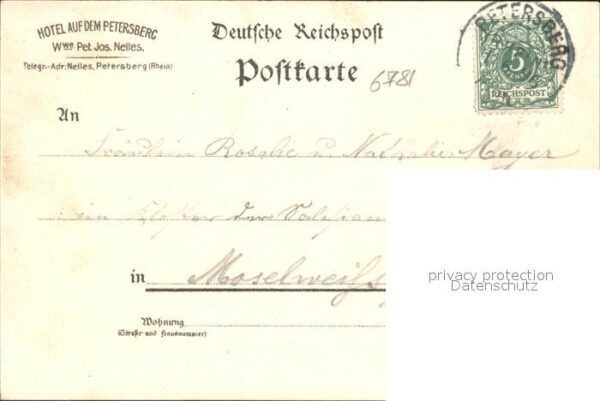 HOTEL AUF DEM PETERSBERG
Wwe Pet. Jos. Nelles.
Telegr.-Adr: Nelles, Petersberg (Rhein)
Deutsche Reichspost
Postkarte
6781
PETERSBERG
5
REICHSPOST
An
Fräulein Rosalie u. Nathalie Mayer
im Kloster der Salesian
in Moselweiß
Wohnung
(Straße und Hausnummer)
privacy protection
Datenschutz